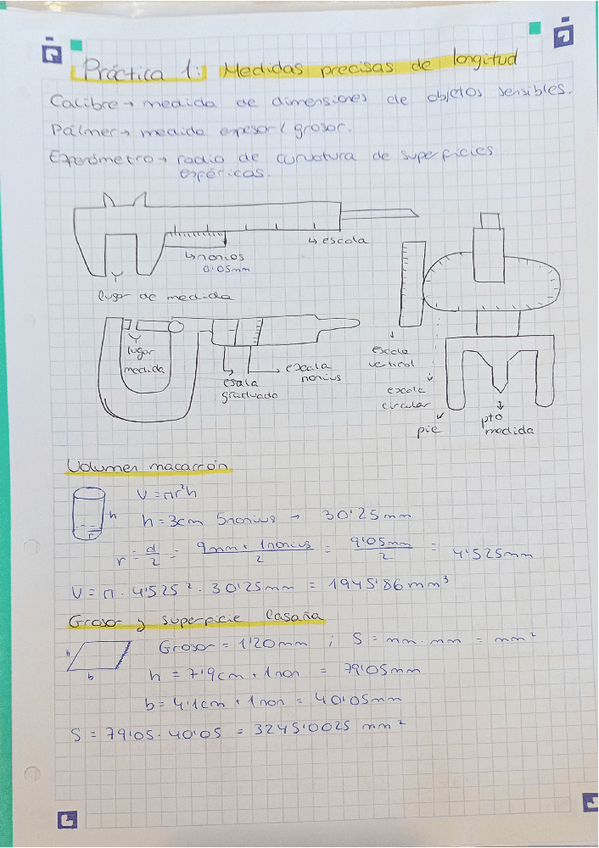 Práctica 1: Medidas precisas de longitud
Calibre → medida de dimensiones de objetos sensibles.
Pálmer → medida espesor / grosor.
Esferómetro → radio de curvatura de superficies
esféricas.
↳ nonios
0'05mm
↳ escala
lugar de medida
lugar
medida
escala
graduada
escala
nonius
escala
vertical
escala
circular
pie
pto
medida
Volumen macarrón
h
r
V = πr²h
h = 3cm 5nonius → 30'25mm
r = d/2 = 9mm + 1nonius / 2 = 9'05mm / 2 = 4'525mm
V = π · 4'525² · 30'25mm = 1945'86 mm³
Grosor y superficie lasaña
h
b
Grosor = 1'20mm ; S = mm mm = mm²
h = 7'9cm + 1non = 79'05mm
b = 4'1cm + 1non = 40'05mm
S = 79'05 · 40'05 = 3245'0025 mm²